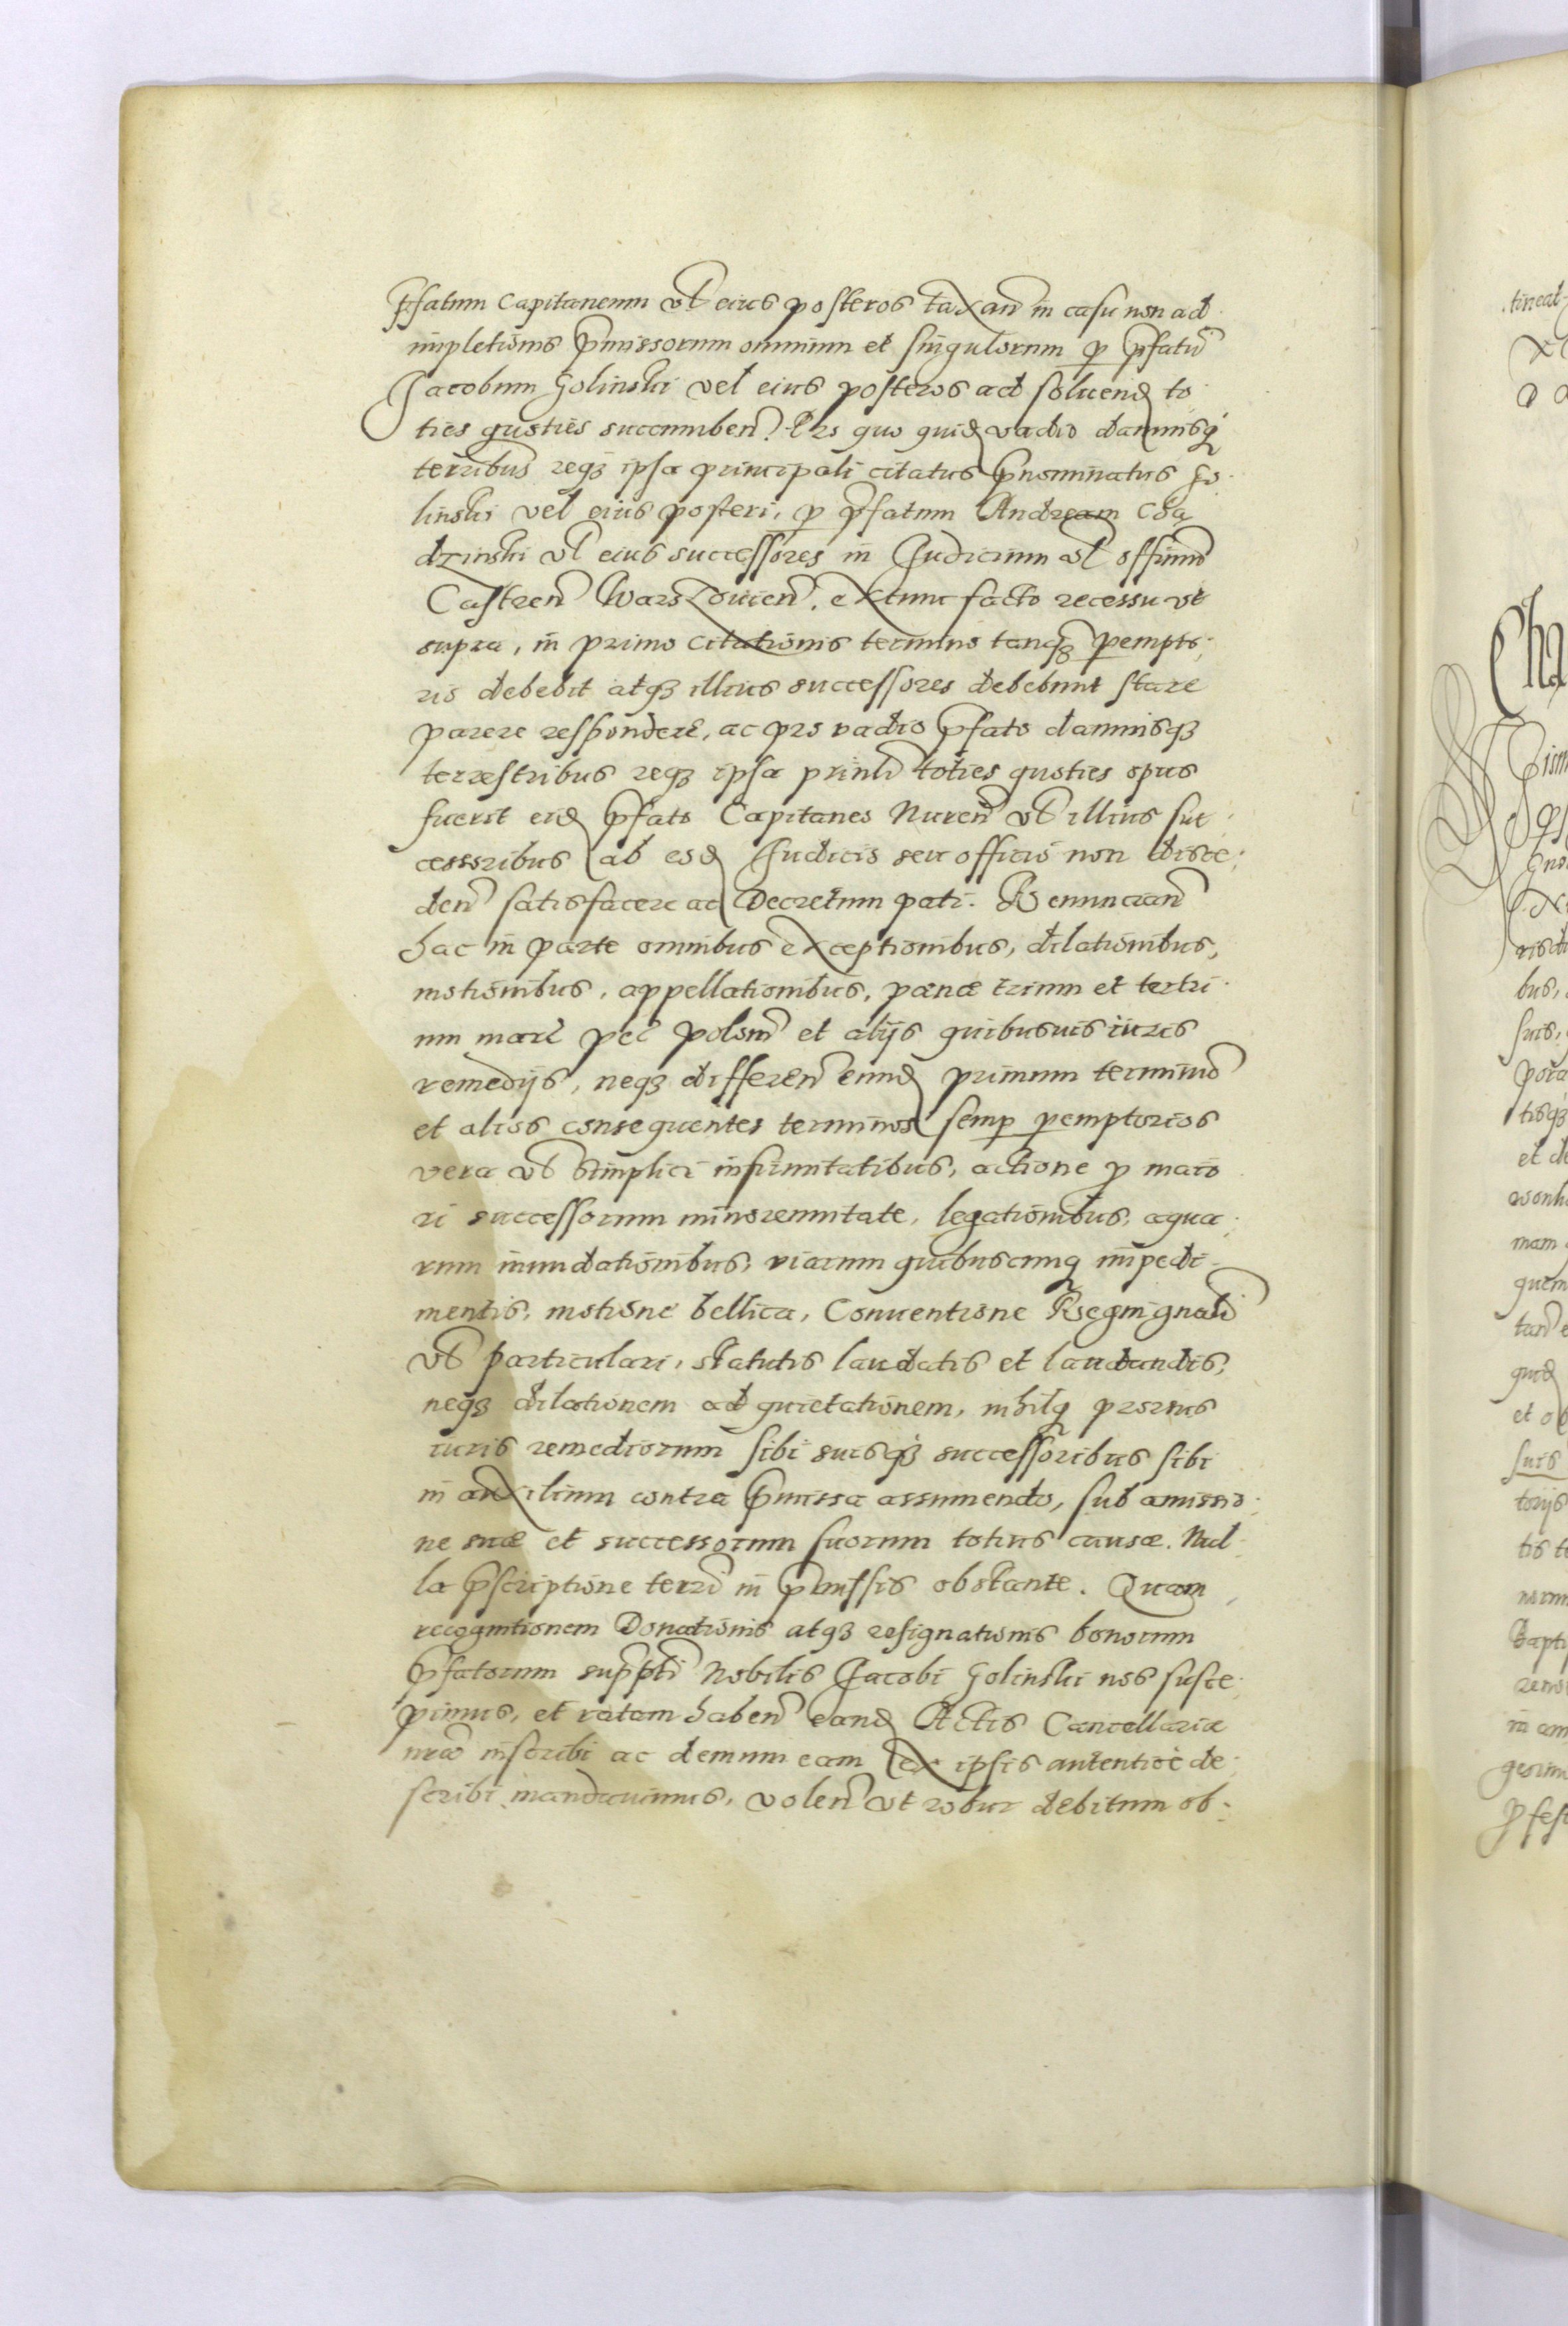 Pfatum Capitaneum vel eius posteros taxan in casu non ad
impletionis pmissorum omnium et singulorum p pfatu
Jacobum Golinski vel eius posteros ad soluend to
ties quoties succumben. Pro quo quid vadio damnisq
terribus reqz ipsa principali citatus pnominatus Go
linski vel eius posteri, p pfatum Andream Cha
dzinski vel eius successores in Judicium vel officiu
Castren Warszouien. extunc facto recessu vt
supra, in primo citationis termino tanqz pempto
rio debebit atqz illius successores debebunt stare
parere respondere, ac pro vadio pfato damnisqz
terrestribus reqz ipsa prinli toties quoties opus
fuerit eid pfato Capitaneo Nuren vel illius suc
cessoribus ab eod Judicio seu officio non disce
den satisfacere ac Decretum pati. Renuncian
hac in parte omnibus exceptionibus, dilationibus,
motionibus, appellationibus, pœnæ trium et terti
um marc pec polon et alijs quibusuis iuris
remedijs, neqz differen eund primum terminu
et alios consequentes terminos semp pemptorios
vera vel simplici infirmitatibus, actione p maio
ri successorum minorennitate, legationibus, aqua
rum inundationibus, viarum quibuscunq impedi
mentis, motione bellica, Conuentione Regni gnali
vel particulari, statutis laudatis et laudandis,
neqz dilationem ad quietationem, nihilq prorsus
iuris remediorum sibi suisqz successoribus sibi
in auxilium contra pmissa assumendo, sub amissio
ne suæ et successorum suorum totius causæ. Nul
la pscriptione terri in pmissis obstante. Quam
recognitionem Donationis atqz resignationis bonorum
pfatorum suppti Nobilis Jacobi Golinski nos susce
pimus, et ratam haben eand Actis Cancellariæ
nræ inscribi ac demum eam ex ipsis autentice de
scribi mandauimus, volen vt robur debitum ob